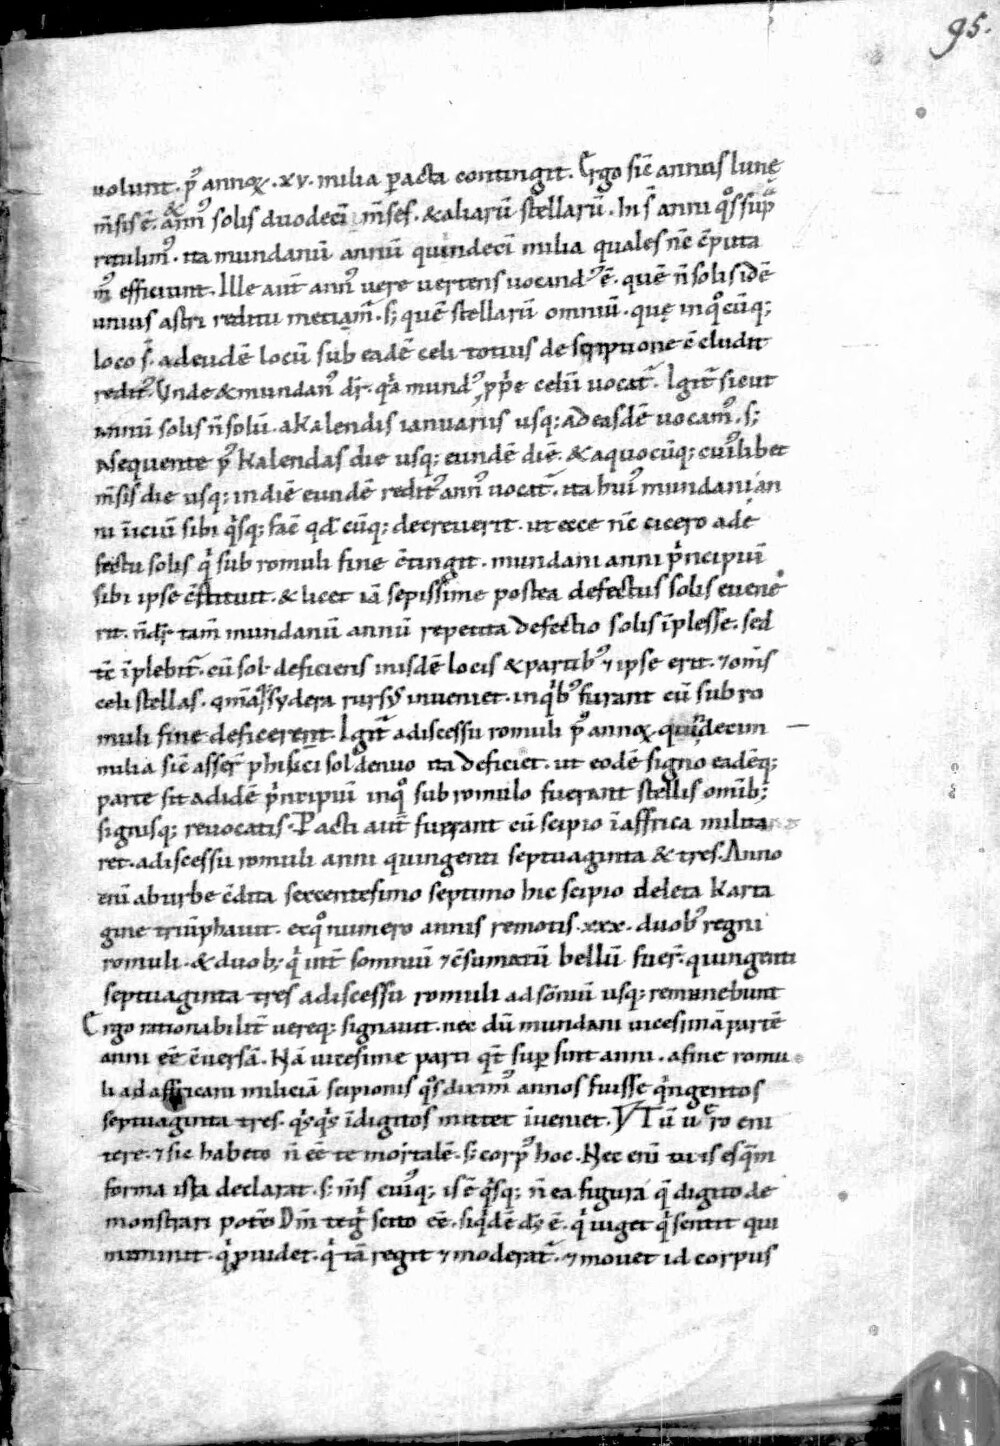 95.
uolunt. p᷒ annoꝝ. xv. milia pacta contingit. Ergo sic̄ annus lunę
m̄sis ē. & ann᷒ solis duodeci m̄ses. & aliarū stellarū. hi s̄ anni q̊s sup̄
retulim᷒. ita mundanū annū quindeci milia quales nc̄ c̄puta
m᷒ efficiunt. Ille aut̄ ann᷒ uere uertens uocand᷒ ē. quē n̄ solis idē
unius astri reditu metiam̄. s; quē stellarū omniū. quę in q̊cūq;
loco s̄. ad eudē locū sub eadē celi totius descriptione c̄cludit
redit᷒. Unde & mundan᷒ dr̄. q̄a mund᷒ ꝓp̄e celū uocat̄. Igit̄ sicut
annū solis n̄ solū. a Kalendis ianuariis usq; ad easdē uocam᷒. s;
a sequente p᷒ Kalendas die usq; eundē diē. & a quocūq; cui᷒libet
m̄sis die usq; in diē eundē redit᷒ ann᷒ uocat̄. ita hui᷒ mundani an
ni īiciū sibi q̇sq; fac̄ qd̄ cūq; decreuerit. ut ecce nc̄ cicero a de
fectu solis q̇ sub romuli fine c̄tingit. mundani anni ṗncipiū
sibi ipse c̄stituit. & licet iā sepissime postea defectus solis euene
rit. n̄ dr̄ tam̄ mundanū annū repetita defectio solis īplesse. sed
tc̄ īplebit̄. cū sol deficiens in isdē locis & partib᷒ ⁊ ipse erit. ⁊ om̄s
celi stellas. om̄iaq̄ sydera rursū inueniet. in q̇b᷒ fuerant cū sub ro
muli fine deficerent. Igit̄ a discessu romuli p᷒ annoꝝ quindecim
milia sic̄ asser̄ phisici sol denuo ita deficiet. ut eodē signo eadēq;
parte sit ad idē ṗncipiū in q̊ sub romulo fuerant stellis om̄ib;
signisq; reuocatis. Pacti aut̄ fuerant cū scipio ī affrica milita
ret. a discessu romuli anni quingenti septuaginta & tres. Anno
enī ab urbe c̄dita sexcentesimo septimo hic scipio deleta Karta
gine triūphauit. ex q̊ numero annis remotis. xxx. duob᷒ regni
romuli. & duob; q̇ int̄ somniū ⁊ c̄sumatū bellū fuer̄. quingenti
septuaginta tres a discessu romuli ad sōniū usq; remanebunt
Ergo rationabilit̄ uereq; signauit. nec dū mundani uicesimā partē
anni eē c̄uersā. Nā uicesime parti q̄t sup sint anni. a fine romu
li ad affricam miliciā scipionis q̊s dixim᷒ annos fuisse q̇ngentos
septuaginta tres. q̇sq̇s ī digitos mittet īueniet. Tū uero eni
tere. ⁊ sic habeto n̄ eē te mortalē. s; corp᷒ hoc. Nec enī tu is es q̄m
forma ista declarat. s; m̄s cui᷒q; is ē q̇sq; n̄ ea figura q̄ digito de
monstrari potē. Dm̄ te g̊ scito eē. siq̇dē d̄s ē. q̇ uiget q̇ sentit qui
meminit. q̇ puidet. q̇ tā regit ⁊ moderat̄. ⁊ mouet id corpus